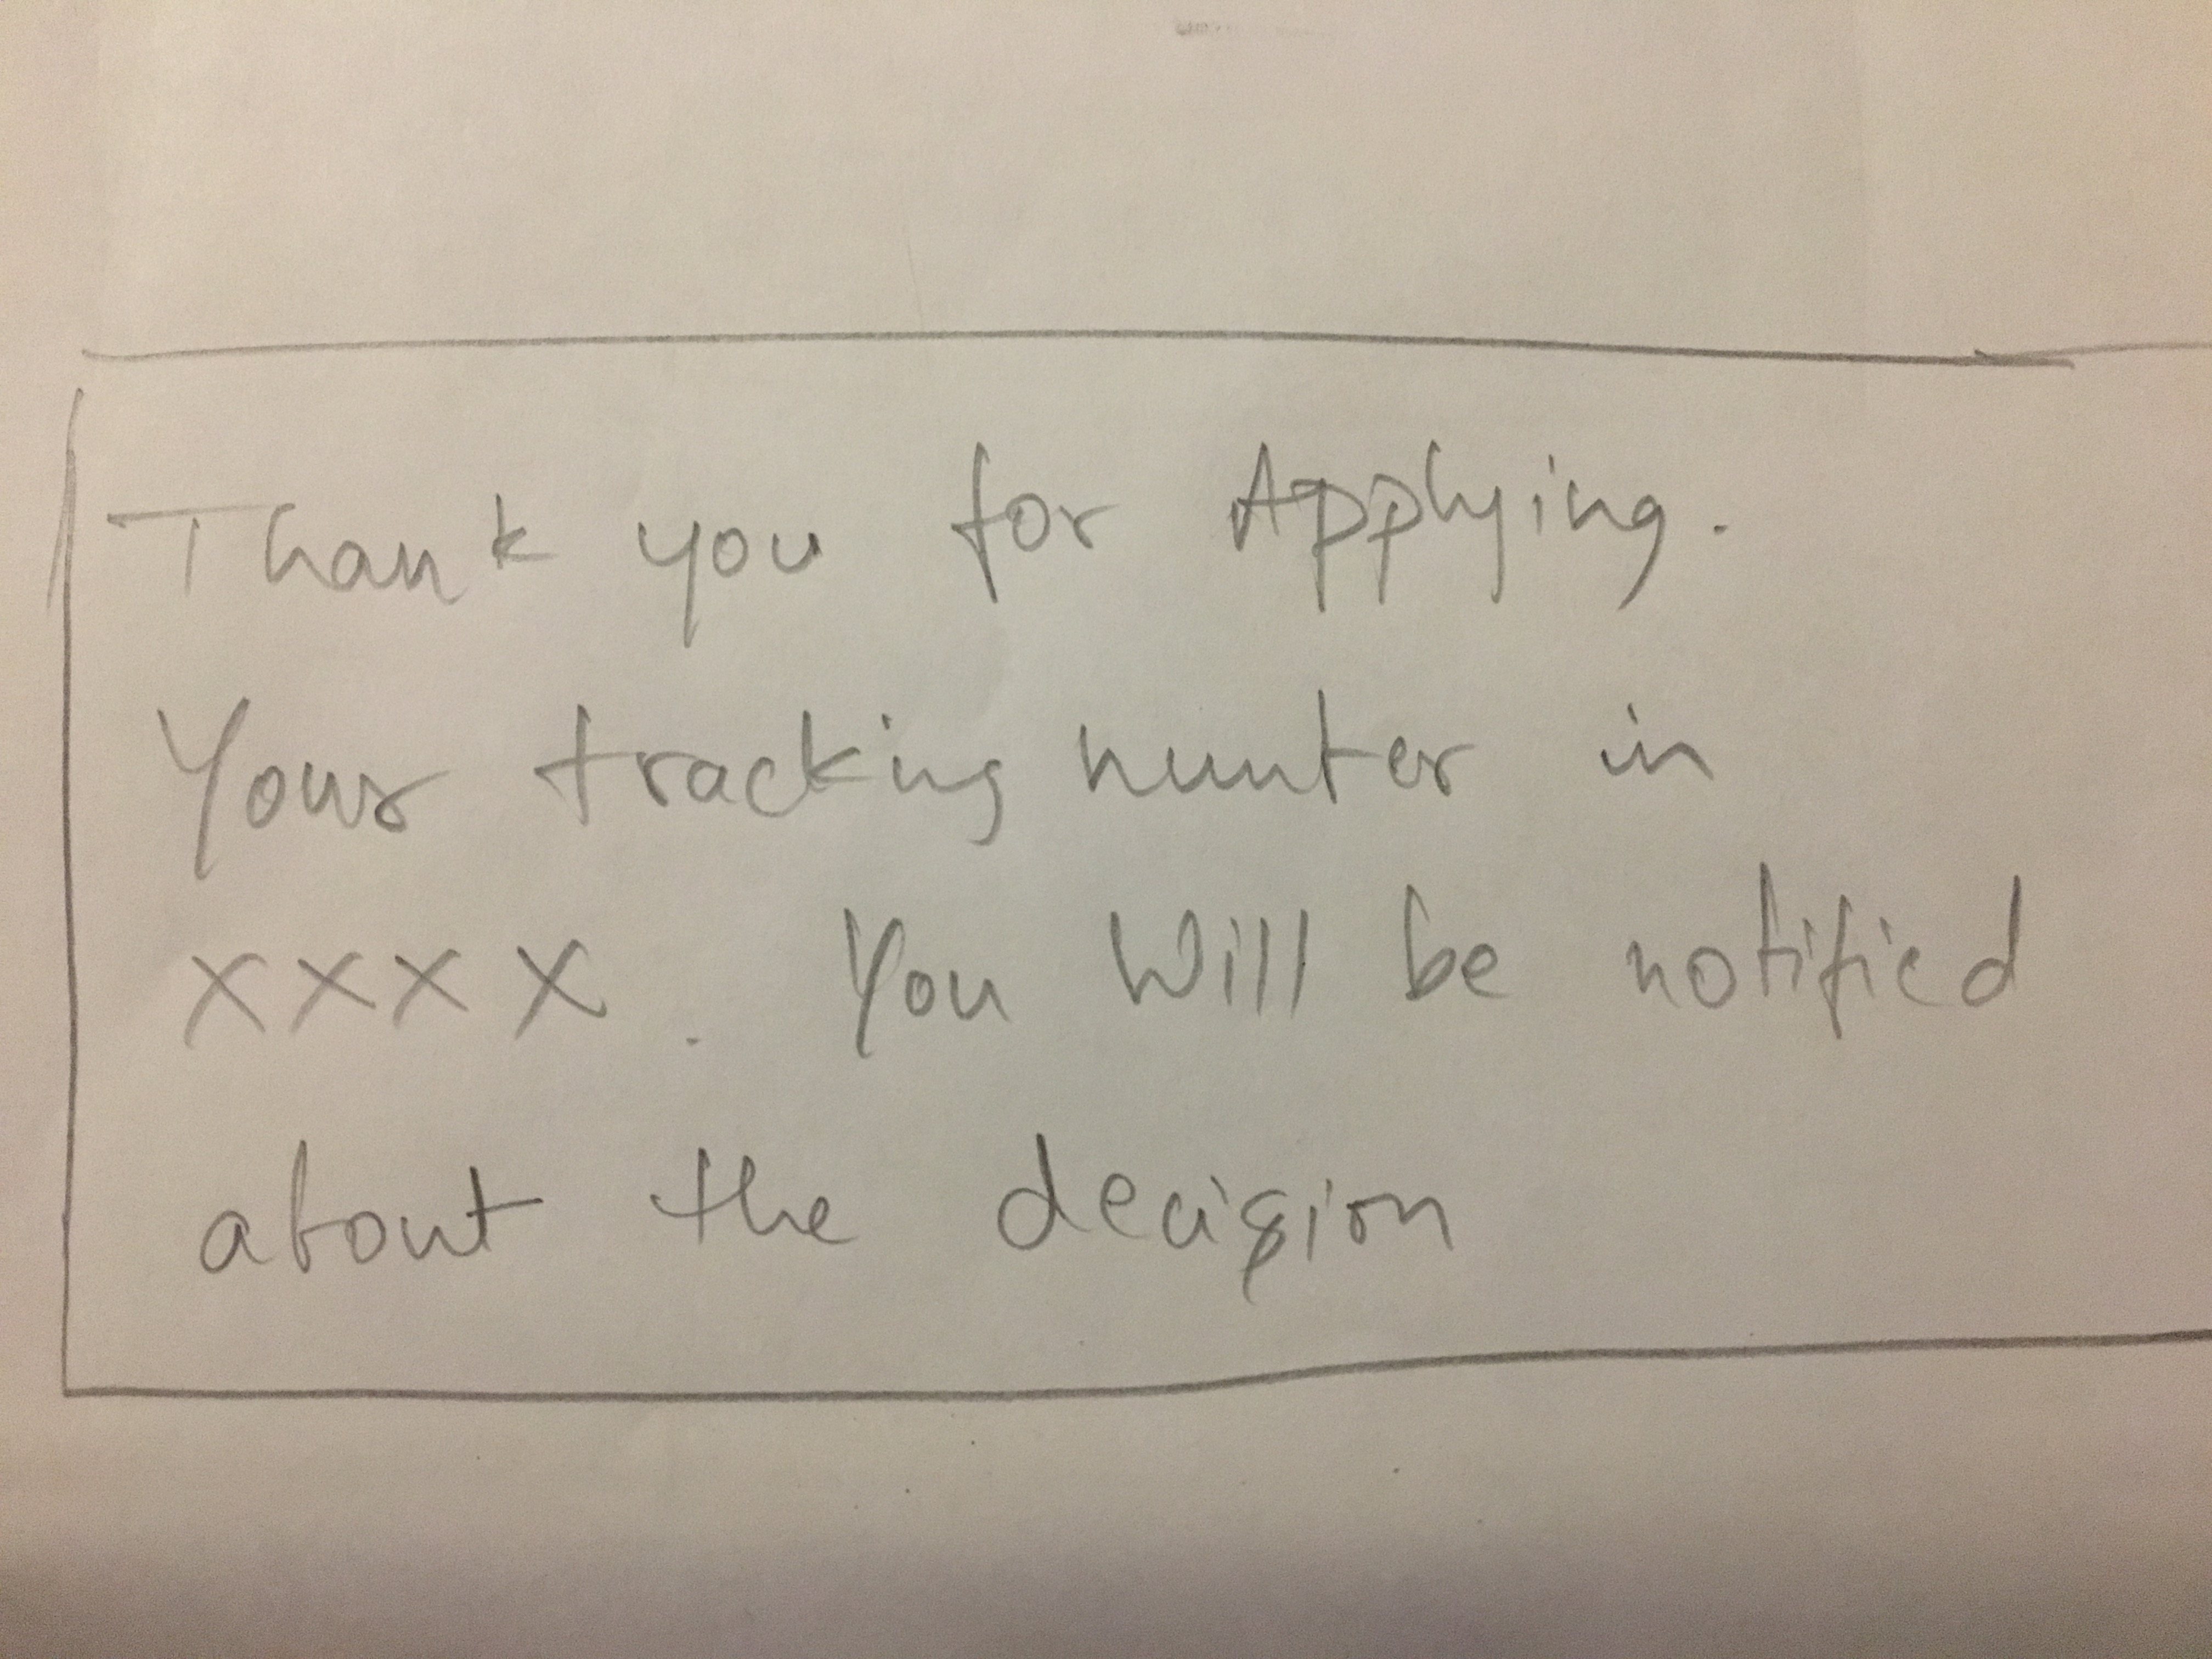 Thank you for Applying.
Your tracking number in
XXXX. You will be notified
about the decision